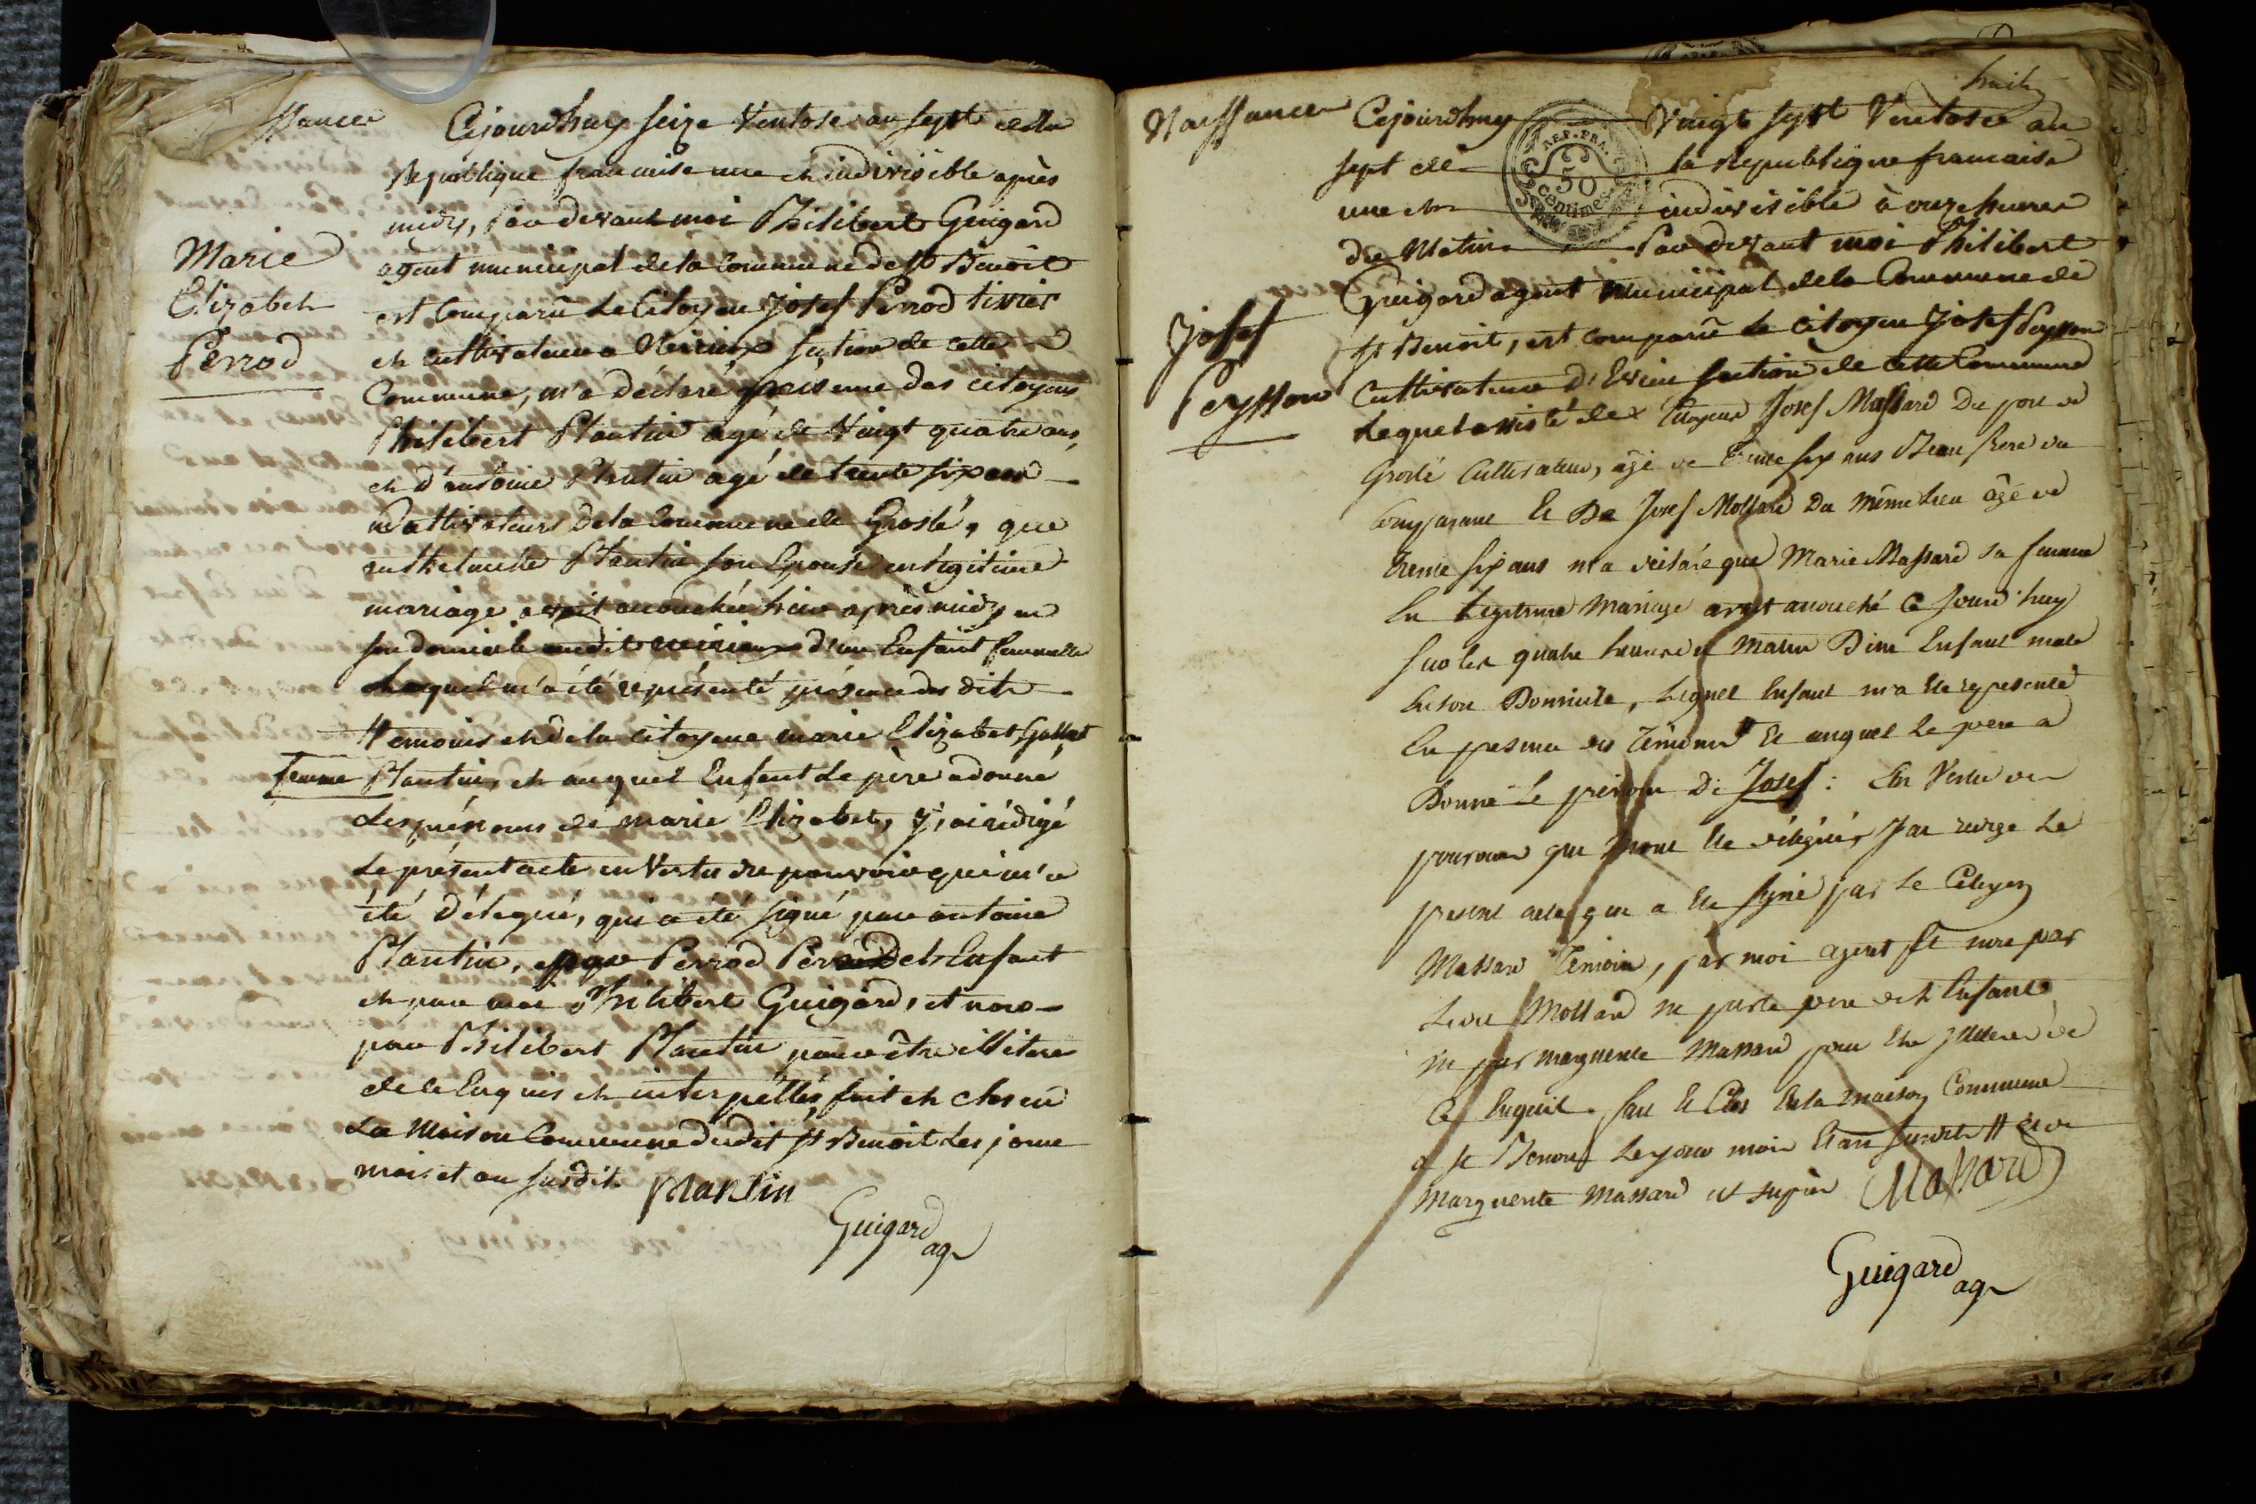 ssance
Marie
Elizabeth
Perrod
Cejourdhuy seize Ventose an sept de la
République francaise une et indivisible après
midy, Par devant moi Philibert Guigard
agent municipal de la Commune de St Benoit
est Comparû Le Citoyen Josef Perrod tissier
et cultivateur a section de cette
Commune, m'a déclaré présence des citoyens
Philibert Plantin agé de Vingt quatre ans,
et d'antoine Plantin agé de trente six ans
cultivateurs de la Commune de Groslé, que
Plantin son Epouse en légitime
mariage avoit accouchée hier après midy en
son domicile audit d'un Enfant femmelle
Lequel m'a été représenté présence des dits
temoins et de la citoyene marie Elizabet Gallet
femme Plantin, et auquel Enfant Le père a donné
Les prénoms de marie Elizabet, j'ai rédigé
Le présent acte en Vertu du pouvoir qui m'a
été délégué, qui a été signé par antoine
Plantin, Perrod Père det Enfant
et par moi Philibert Guigard, et non
par Philibert Plantin pour être illitere
de ce Enquis et interpellés, fait et clos en
La Maison Commune dudit St Benoit Les jour
mois et an susdits
Plantin
Guigard
agt
huit
Naissance
Josef
Peysson
REP. FRA.
50
Centimes
Cejourdhuy Vingt sept Ventose an
sept de la République francaise
une et indivisible à onze heures
du Matin Par devant moi Philibert
Guigard agent municipal de la Commune de
St Benoit, est comparû Le citoyen Josef Peysson
Cultivateur D'Evieu section de cette Commune
Lequel assisté de Citoyens Josef Massard Du port de
Groslé Cultivateur, âgé de Trente six ans Beau frere du
Comparant Et De Josef Mollard Du même Lieu âgé de
Trente six ans m'a déclaré que Marie Massard sa femme
En Légitime Mariage avoit accouché Ce Jourd'huy
sur les quatre heures du Matin D'un Enfant male
En son Domicile, Lequel Enfant m'a Eté representé
En presence des Témoins Et auquel Le pere a
Donné Le prénom De Josef: En Vertu des
pouvoirs qui m'ont Eté délégués J'ai redigé Le
present acte qui a Eté signé par Le Citoyen
Massard Témoin, par moi agent Et non par
Ledit Mollard ni par le pere det Enfant
ni par marguerite Massard pour Etre Illiterés de
Ce Enquis. fait Et Clos En la maison Commune
a St Benoit Les jour mois Et an susdits
Marguerite Massard
Massard
Guigard
agt